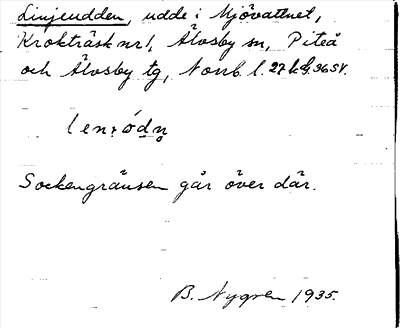 Linjeudden, udde i Mjövattnet,
Krokträsk nr 1, Älvsby sn, Piteå
och Älvsby tg, Norrb. l. 27 k
Sockengränsen går över där.
B. Nygren 1935.